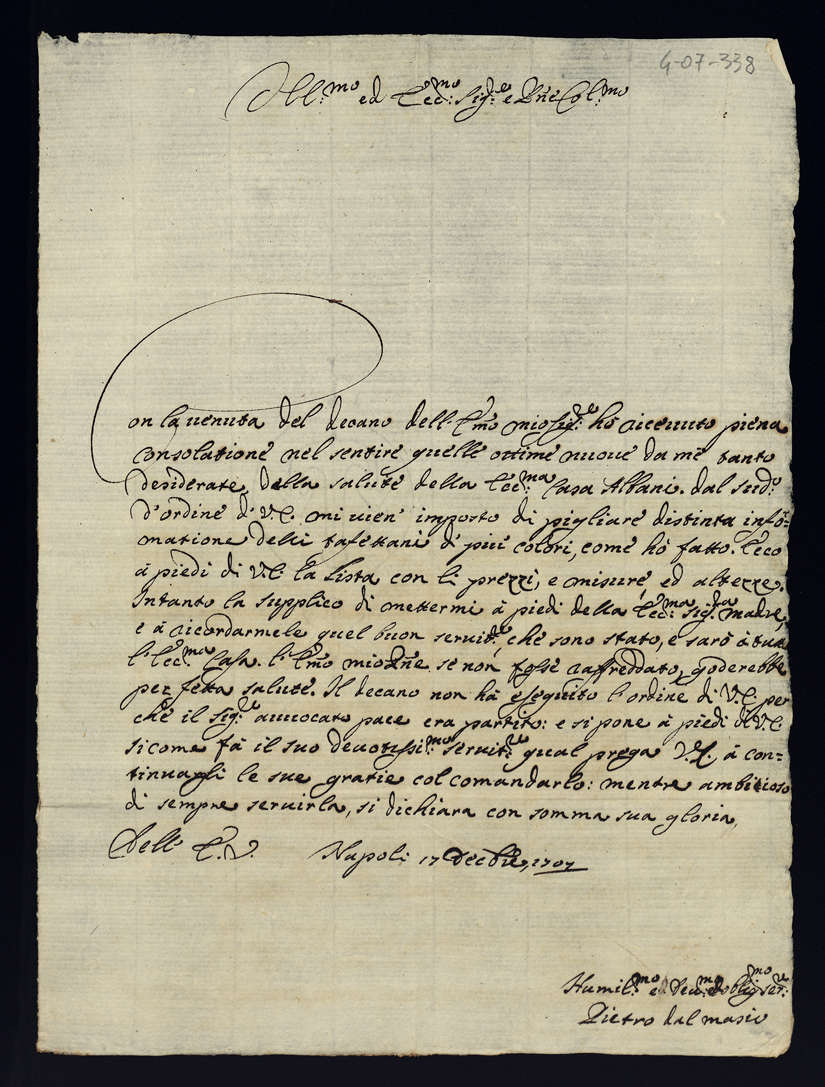 4-07-338
Ill:mo ed Ecc:mo Sig:re e Pne Col:mo
Con la venuta del decano dell'Emo mio Sig:re hò riceuuto piena
consolatione nel sentire quelle ottime nuoue da me tanto
desiderate della salute della Ecc:ma Casa Albani. dal sud:o
d'ordine di V.E. mi uien' imposto di pigliare distinta infor=
matione delli tafettani di più colori, come hò fatto. Ecco
à piedi di V.E. la lista con li prezzi, e misure, ed altezze.
Intanto la supplico di mettermi à piedi della Ecc:ma Sig:ra madre,
e à ricordarmele quel buon seruit:re, che sono stato, e sarò à tutta
l'Ecc:ma Casa. l'Emo mio Pne se non fosse raffreddato, goderebbe
perfetta salute. Il decano non hà eseguito l'ordine di V.E. per
che il sig:re auuocato pace era partito: e si pone à piedi di V.E.
si come fà il suo deuotissi:mo seruit:re qual prega V.E. à con=
tinuargli le sue gratie col comandarlo: mentre ambitioso
di sempre seruirla, si dichiara con somma sua gloria,
Dell' E.V. Napoli 17 Decbre, 1707
Humil:mo ed oblig:mo ser:re
Pietro dal masio